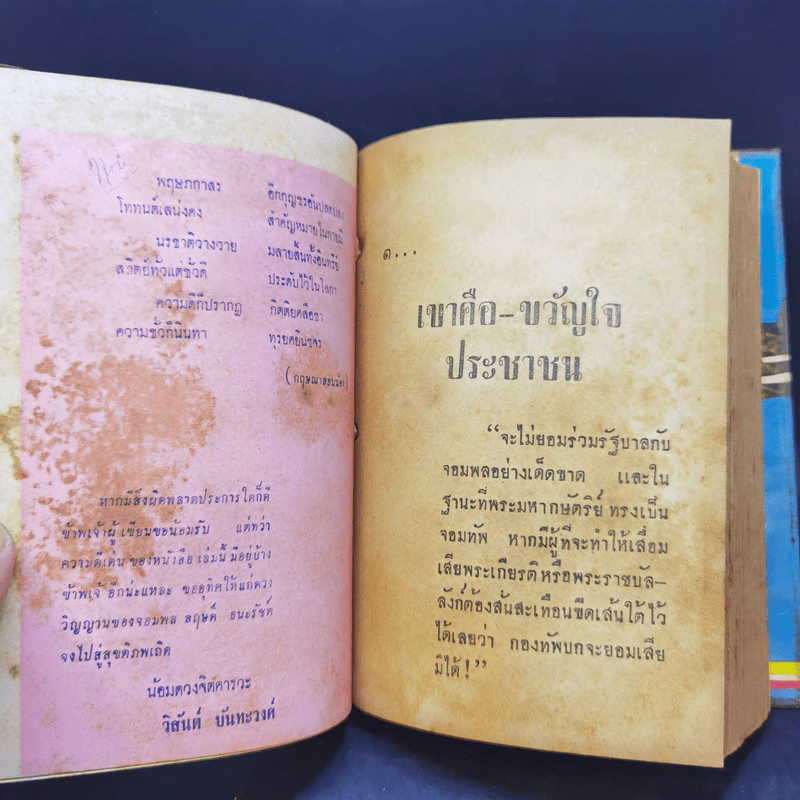 พฤษภกาสร
อีกกุญชรอันปลดปลง
โททนต์เสน่งคง
สำคัญหมายในกายมี
นรชาติวางวาย
มลายสิ้นทั้งอินทรีย์
สถิตย์ทั่วแต่ชั่วดี
ประดับไว้ในโลกา
ความดีก็ปรากฏ
กิตติยศลือชา
ความชั่วก็นินทา
ทุรยศยินขจร
(กฤษณาสอนน้อง)
หากมีสิ่งผิดพลาดประการใดก็ดี
ข้าพเจ้าผู้เขียนขอน้อมรับ แต่ทว่า
ความดีเด่นของหนังสือเล่มนี้มีอยู่บ้าง
ข้าพเจ้อีกน่ะแหละ ขออุทิศให้แก่ดวง
วิญญาณของจอมพล สฤษดิ์ ธนะรัชต์
จงไปสู่สุขติภพเถิด
น้อมดวงจิตคารวะ
วิสันต์ บันทะวงศ์
๑...
เขาคือ-ขวัญใจ
ประชาชน
“จะไม่ยอมร่วมรัฐบาลกับ
จอมพลอย่างเด็ดขาด และใน
ฐานะที่พระมหากษัตริย์ ทรงเป็น
จอมทัพ หากมีผู้ที่จะทำให้เสื่อม
เสียพระเกียรติหรือพระราชบัล-
ลังก์ต้องสั่นสะเทือนขีดเส้นใต้ไว้
ได้เลยว่า กองทัพบกจะยอมเสีย
มิได้!”